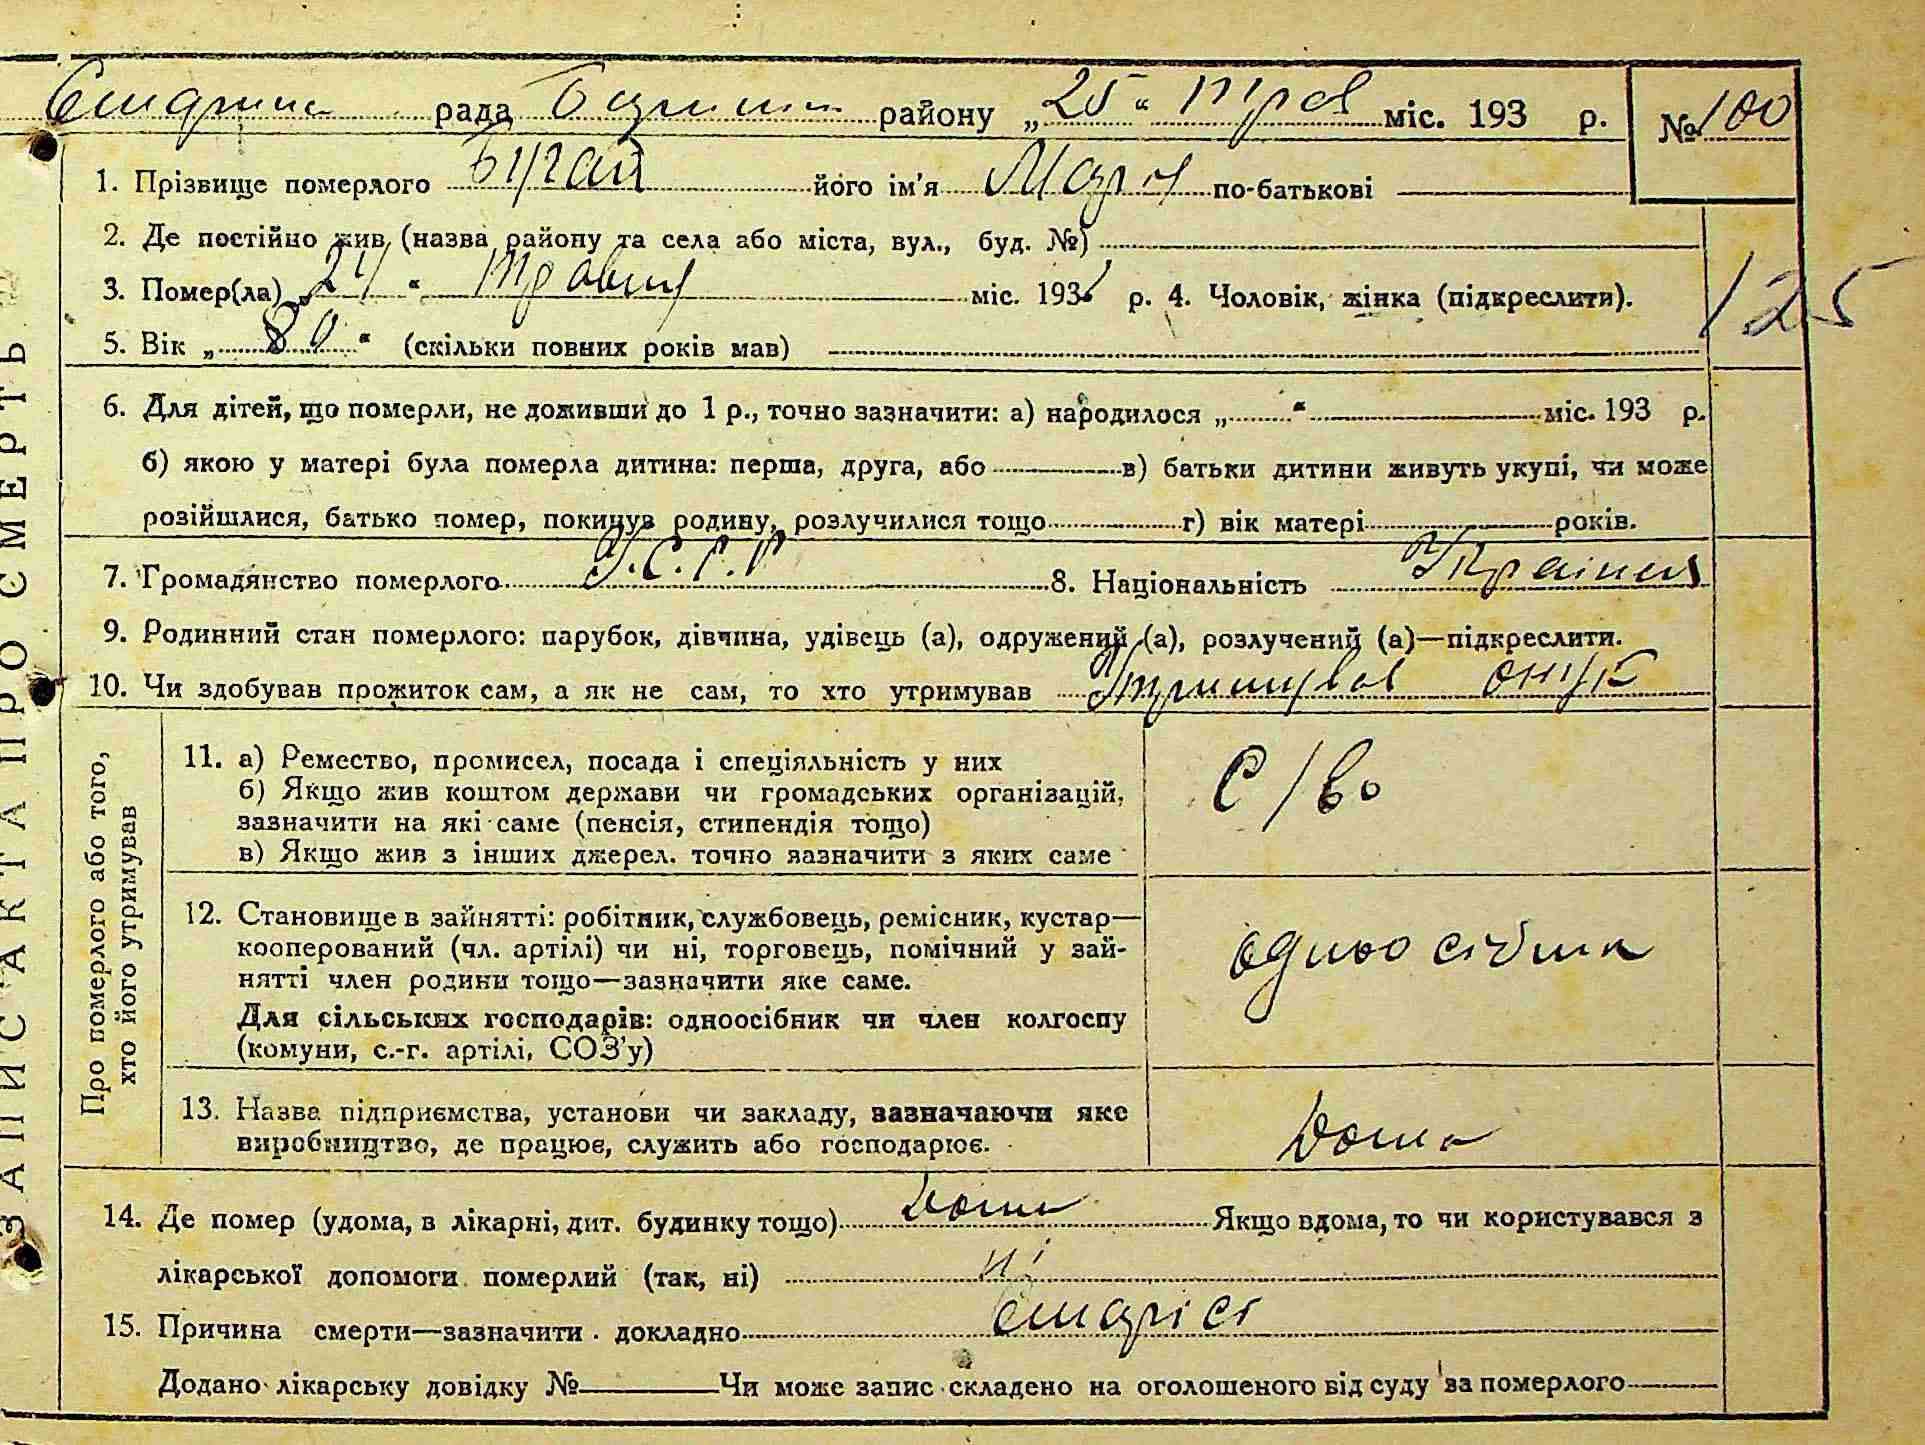 рада району „25“ Трав міс. 193 р. №100
1. Прізвище померлого Бугай його ім'я Марія по-батькові
2. Де постійно жив (назва району та села або міста, вул., буд. №)
3. Помер(ла) „24“ травня міс. 193 р. 4. Чоловік, жінка (підкреслити).
125
5. Вік „80“ (скільки повних років мав)
6. Для дітей, що померли, не доживши до 1 р., точно зазначити: а) народилося „ “ міс. 193 р.
б) якою у матері була померла дитина: перша, друга, або в) батьки дитини живуть укупі, чи може
розійшлися, батько помер, покинув родину, розлучилися тощо г) вік матері років.
7. Громадянство померлого У.С.Р.Р 8. Національність
9. Родинний стан померлого: парубок, дівчина, удівець (а), одружений (а), розлучений (а)—підкреслити.
10. Чи здобував прожиток сам, а як не сам, то хто утримував Утримував онук
ЗАПИС АКТА ПРО СМЕРТЬ
Про померлого або того,
хто його утримував
11. а) Ремество, промисел, посада і спеціяльність у них
б) Якщо жив коштом держави чи громадських організацій,
зазначити на які саме (пенсія, стипендія тощо)
в) Якщо жив з інших джерел. точно зазначити з яких саме
С/го
12. Становище в зайнятті: робітник, службовець, ремісник, кустар—
кооперований (чл. артілі) чи ні, торговець, помічний у зай-
нятті член родини тощо—зазначити яке саме.
Для сільських господарів: одноосібник чи член колгоспу
(комуни, с.-г. артілі, СОЗ'у)
13. Назва підприємства, установи чи закладу, зазначаючи яке
виробництво, де працює, служить або господарює.
Дома
14. Де помер (удома, в лікарні, дит. будинку тощо) Дома Якщо вдома, то чи користувався з
лікарської допомоги померлий (так, ні) ні
15. Причина смерти—зазначити докладно старість
Додано лікарську довідку № Чи може запис складено на оголошеного від суду за померлого